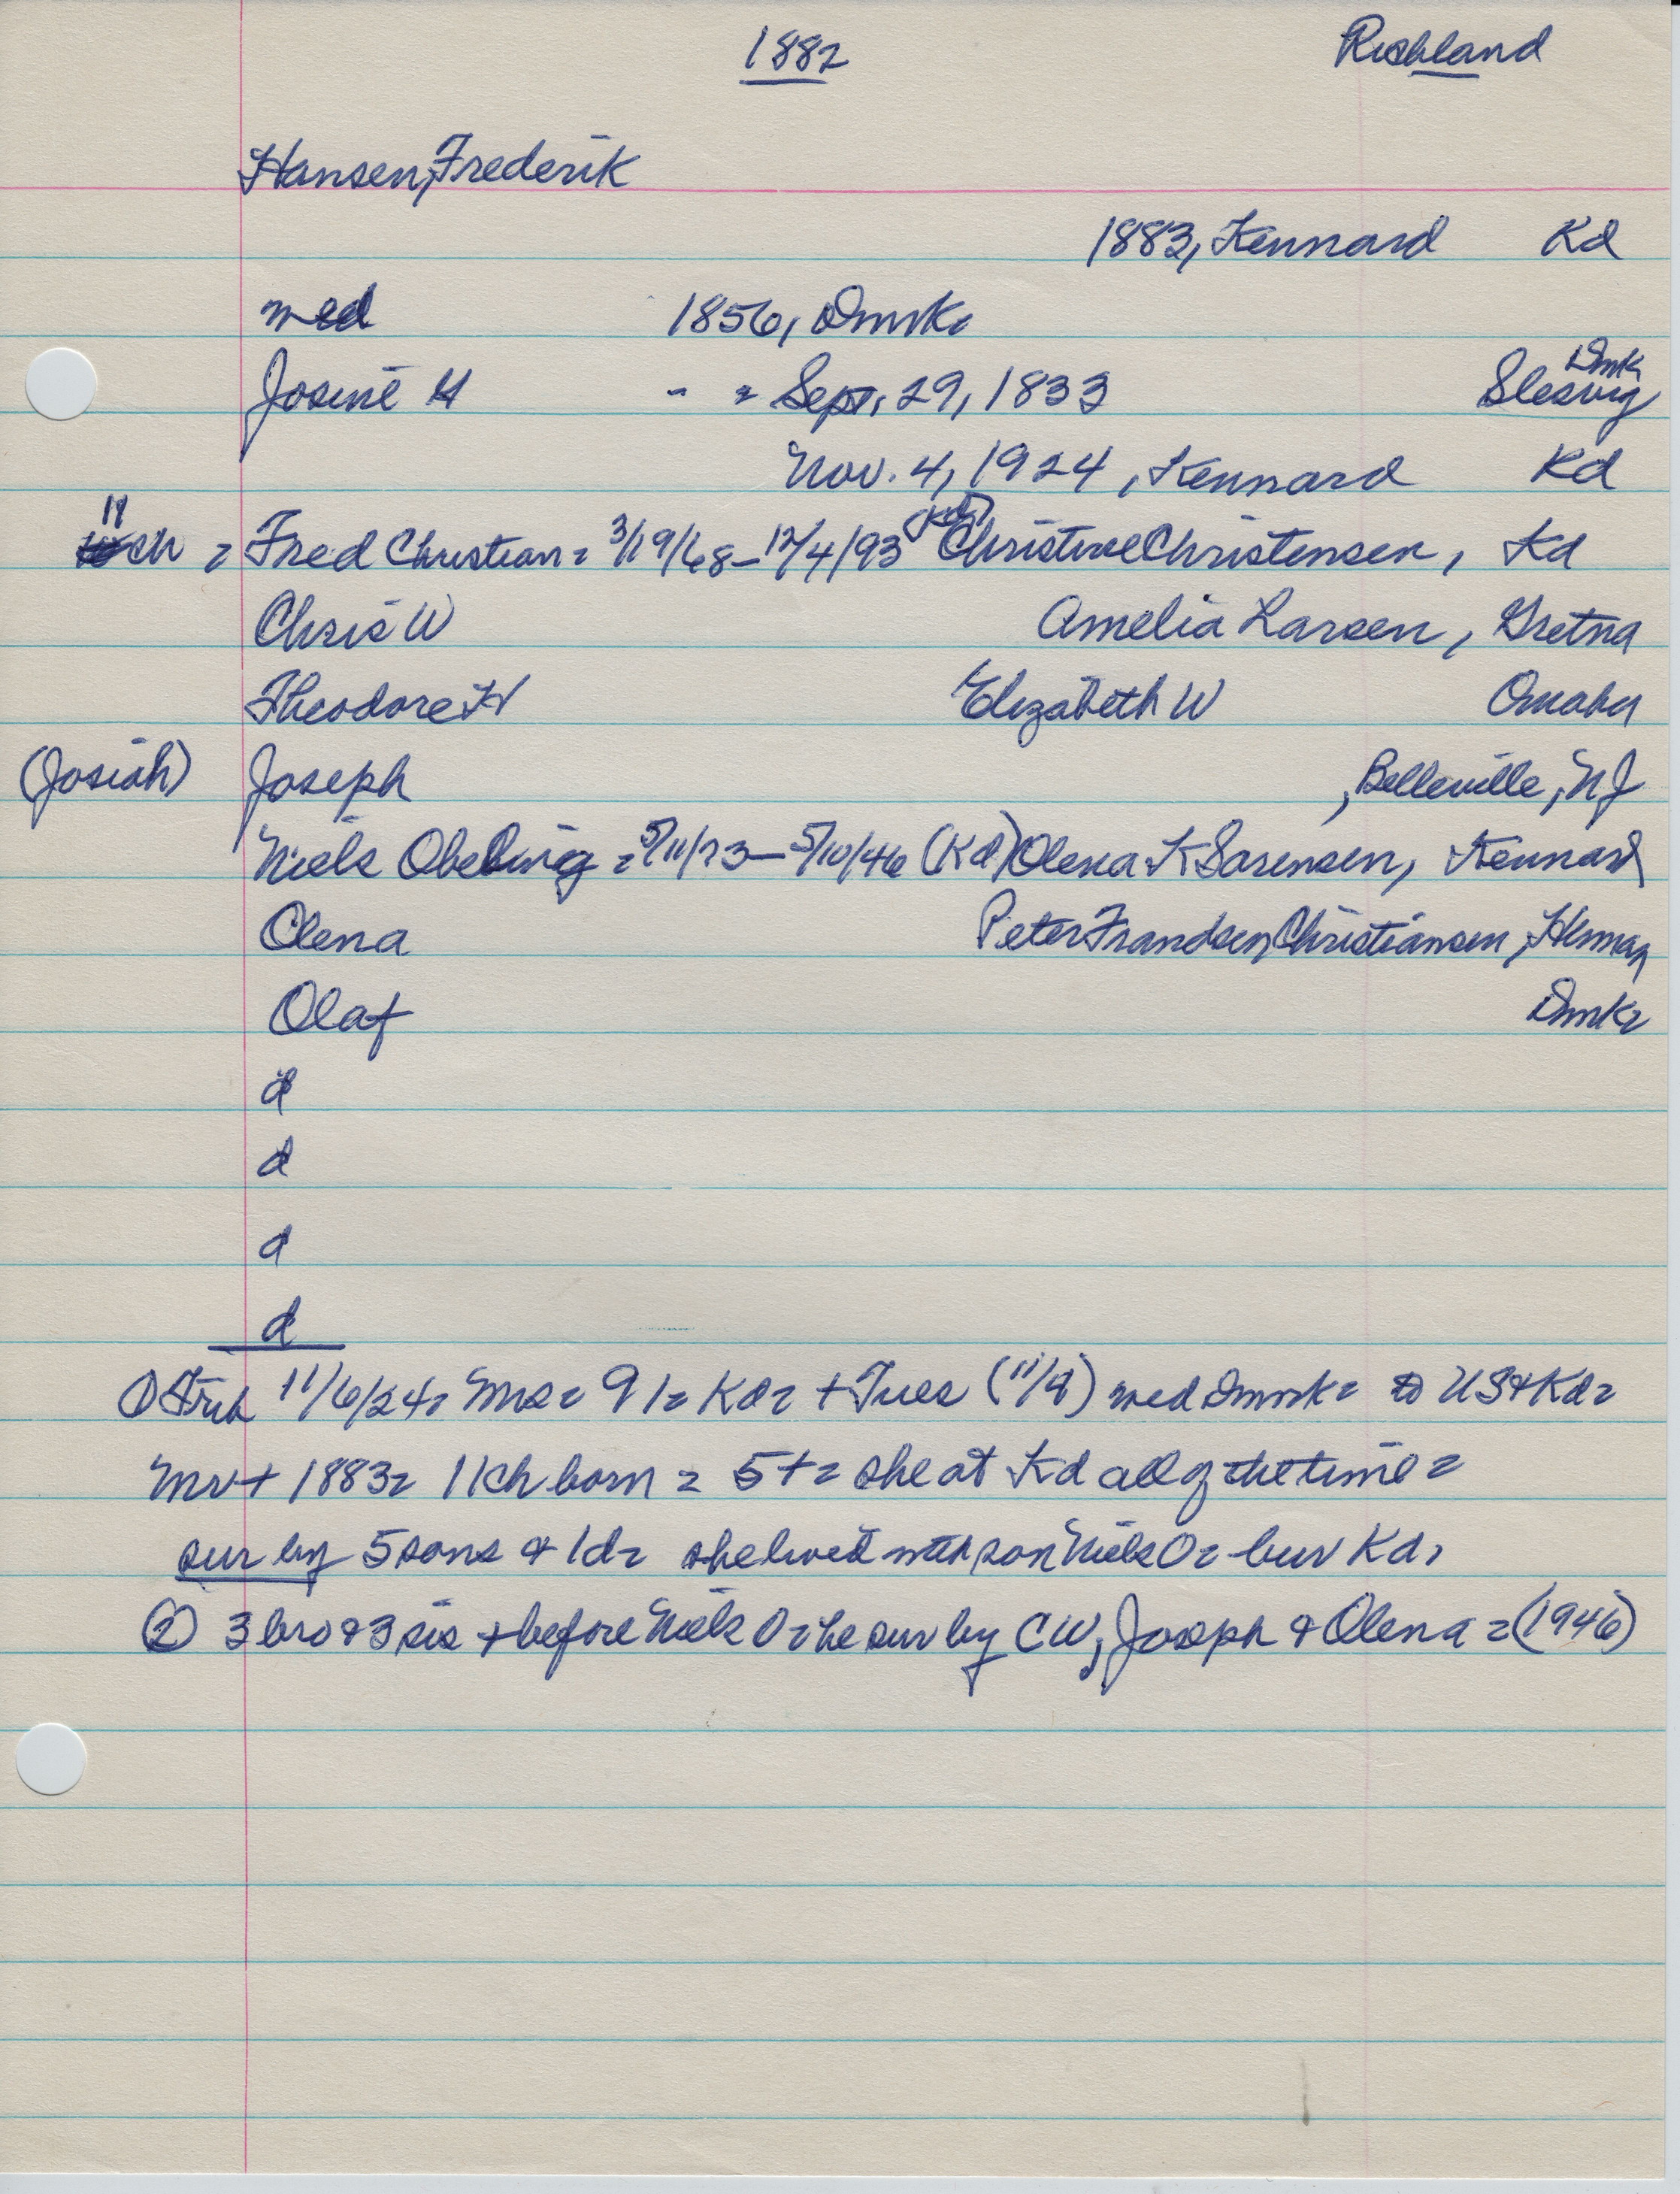 1882 Richland
Hansen, Frederik
1883, Kennard Kd
med 1856, Dmrk=
Dmk
Josine H - = Sept. 29, 1833 Slesvig
Nov. 4, 1924, Kennard Kd
11
ch = Fred Christian = 3/19/68-12/4/93 (Kd) Christine Christensen, Kd
Chris W Amelia Larsen, Gretna
Theodore H Elizabeth W Omaha
(Josiah) Joseph , Belleville, NJ
Niels = 5/11/73-5/10/46 (Kd) Olena K Sorensen, Kennard
Olena Peter Frandsen Christiansen, Herman
Olaf Dmk=
d
d
d
d
① 11/6/24= Mrs= 91= Kd= + Tues (11/4) med Dmrk= to US & Kd=
Mr + 1883= 11 ch born = 5+= she at Kd all of the time =
sur by 5 sons & 1d= she lived with son Niels O= bur Kd,
② 3 bro & 3 sis + before Niels O= he sur by CW, Joseph & Olena = (1946)